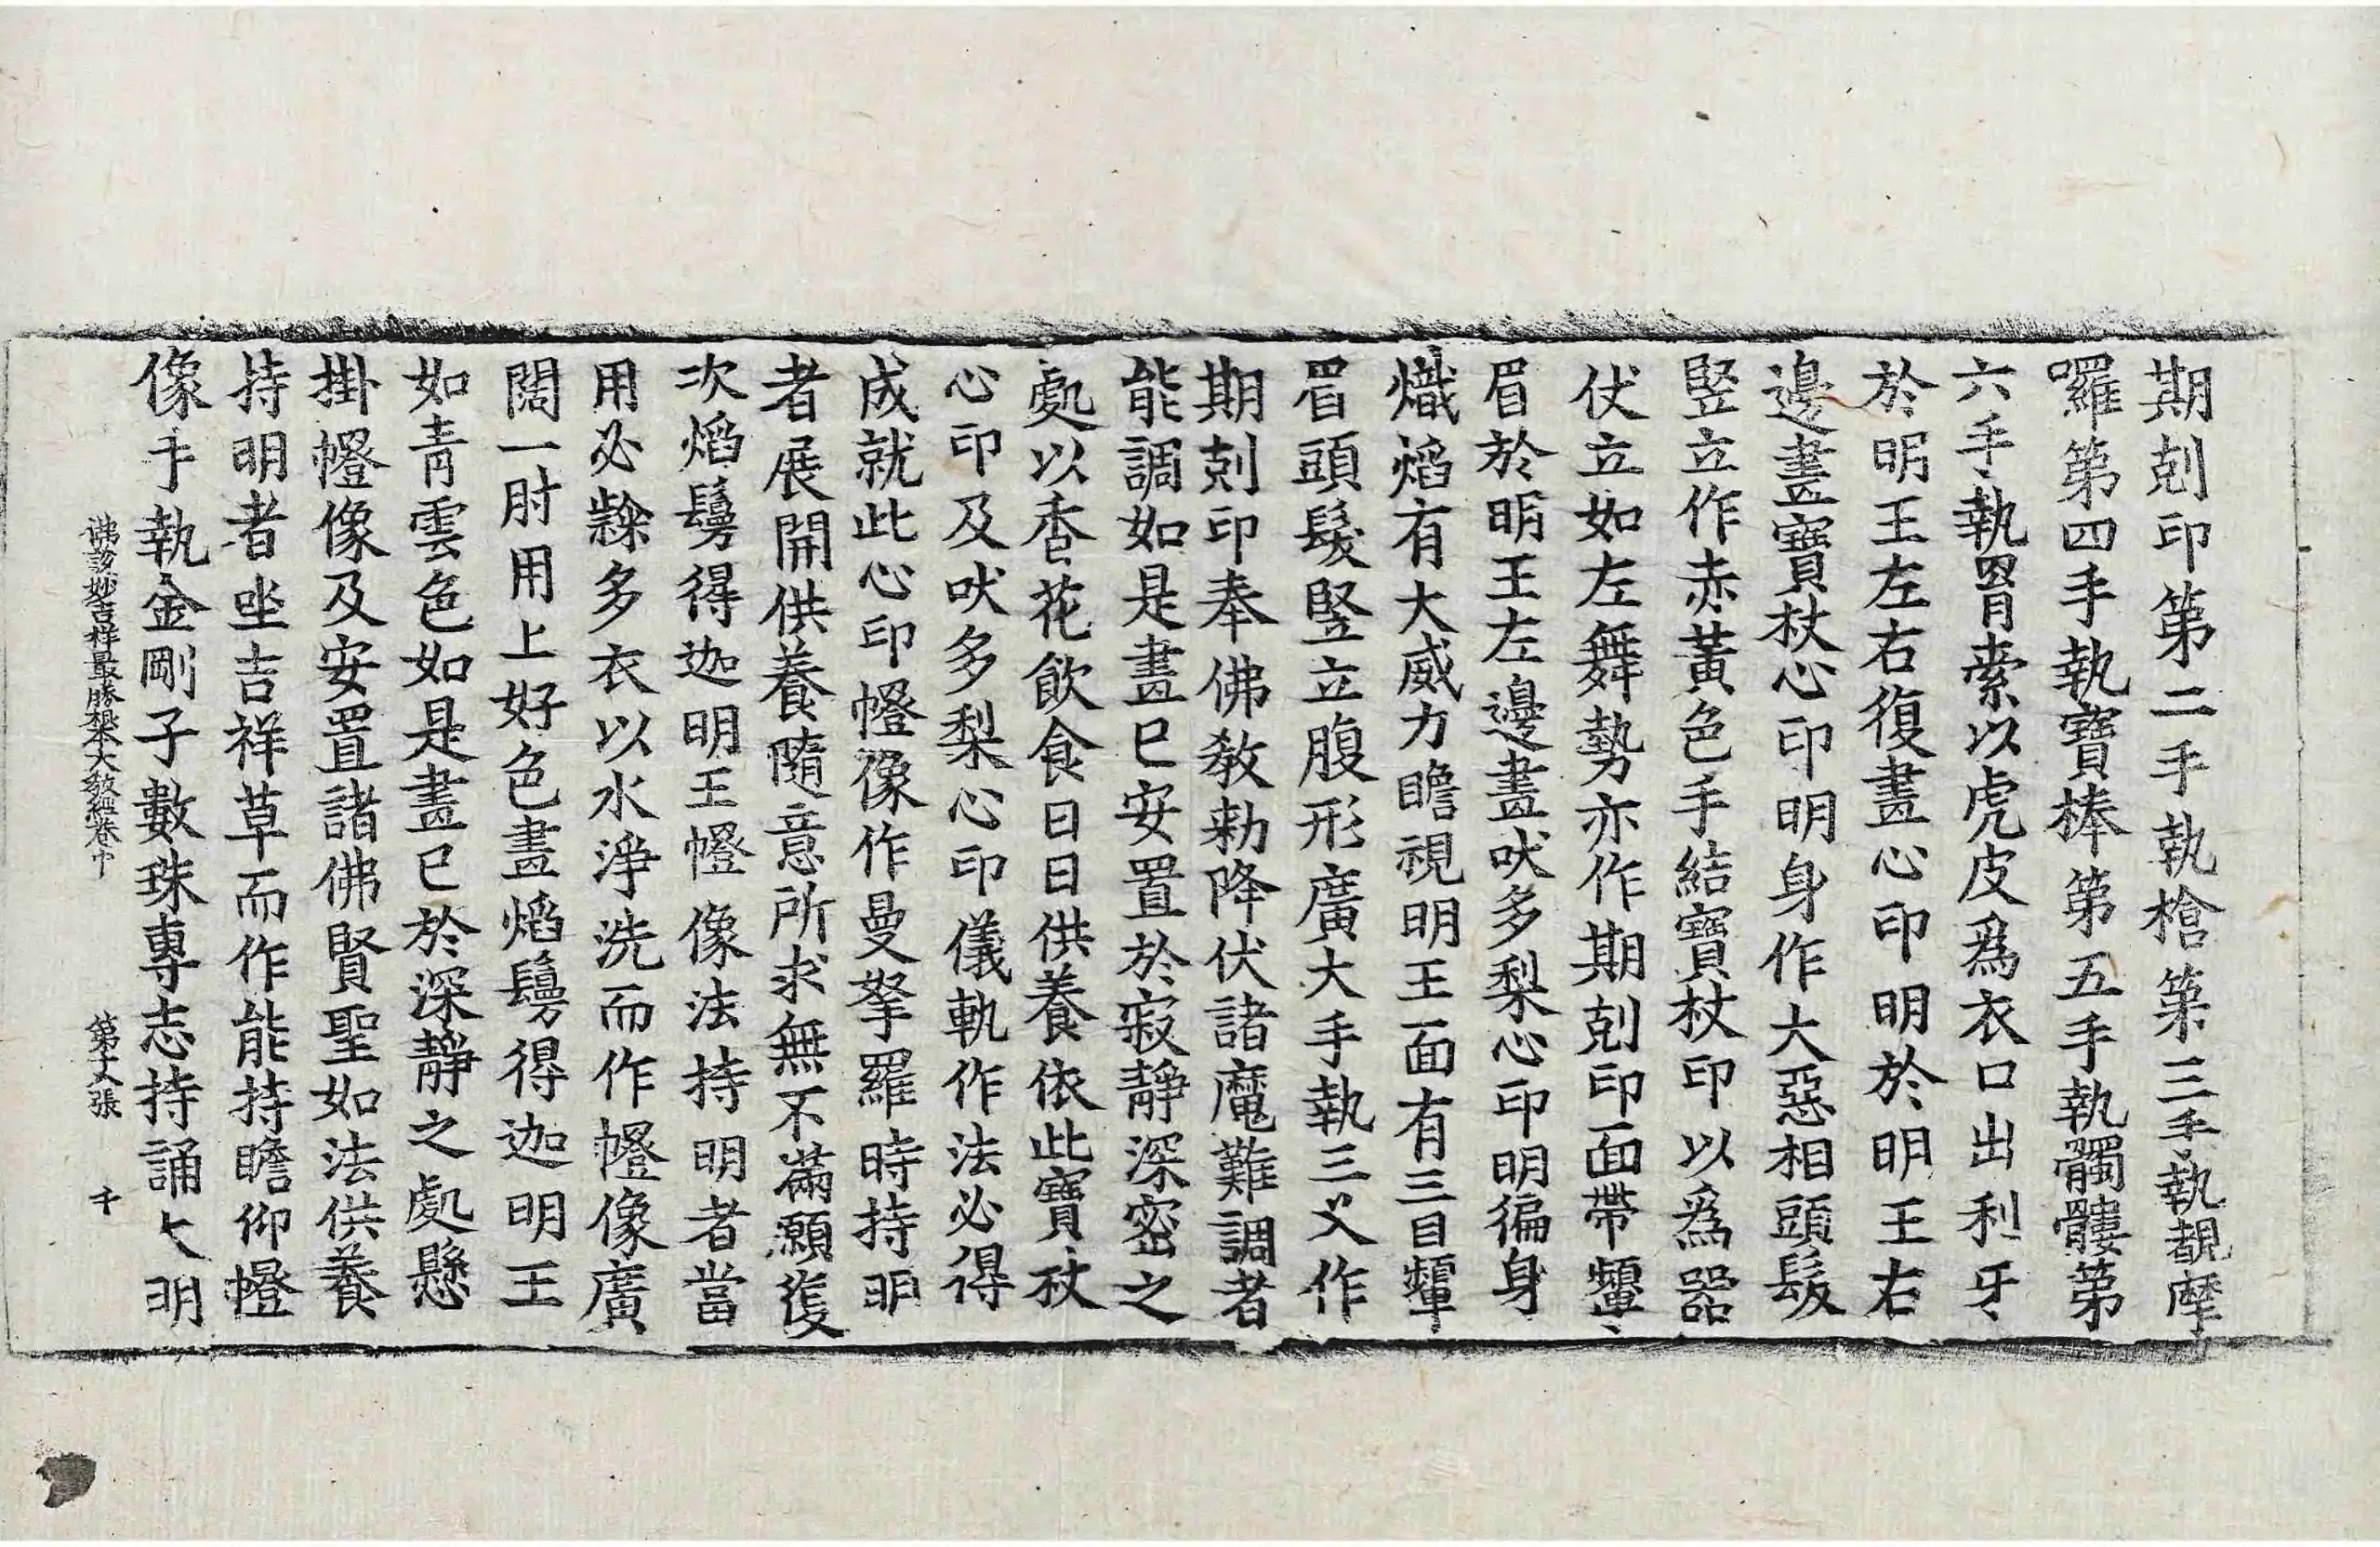 期剋印第二手執槍第三手執覩摩
囉第四手執寶棒第五手執髑髏第
六手執罥索以虎皮爲衣口出利牙
於明王左右復畫心印明於明王右
邊畫寶杖心印明身作大惡相頭髮
竪立作赤黃色手結寶杖印以爲器
伏立如左舞勢亦作期剋印面帶顰
眉於明王左邊畫吠多梨心印明徧身
熾焰有大威力瞻視明王面有三目顰
眉頭髮竪立腹形廣大手執三叉作
期剋印奉佛敎勑降伏諸魔難調者
能調如是畫已安置於寂靜深密之
處以香花飮食日日供養依此寶杖
心印及吠多梨心印儀軌作法必得
成就此心印㡧像作曼拏羅時持明
者展開供養隨意所求無不滿願復
次焰鬘得迦明王㡧像法持明者當
用必隸多衣以水淨洗而作㡧像廣
闊一肘用上好色畫焰鬘得迦明王
如靑雲色如是畫已於深靜之處懸
掛㡧像及安置諸佛賢聖如法供養
持明者坐吉祥草而作能持瞻仰㡧
像手執金剛子數珠專志持誦大明
佛說妙吉祥最勝根本大敎經卷中 第丈張 千